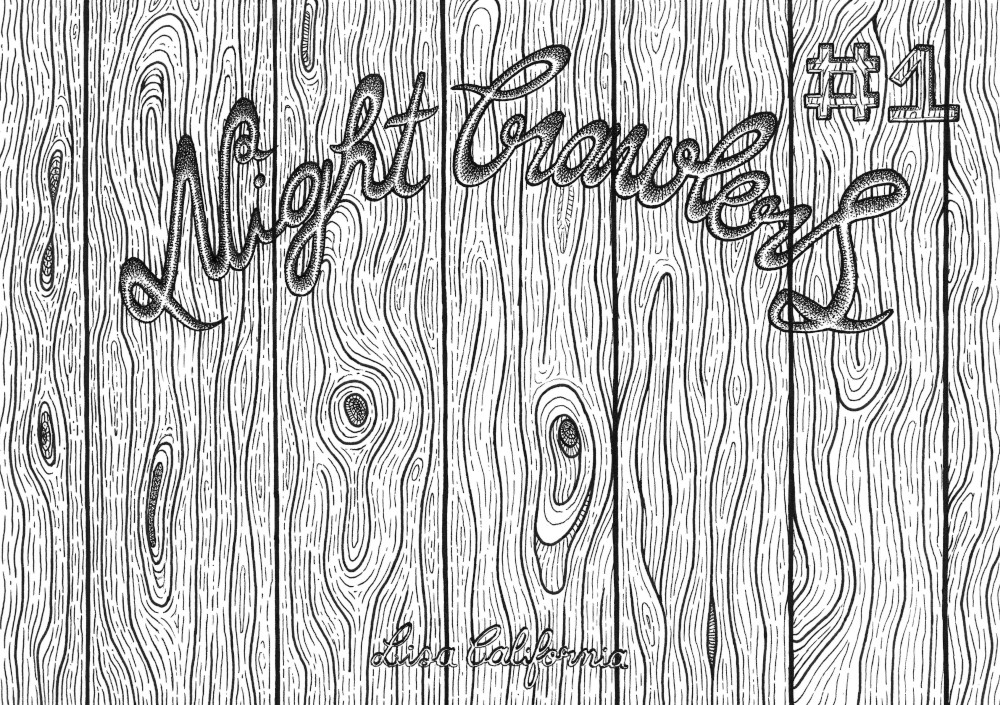 Night Crawlers
#1
Lisa California